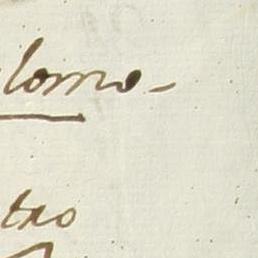 lomo-
tro